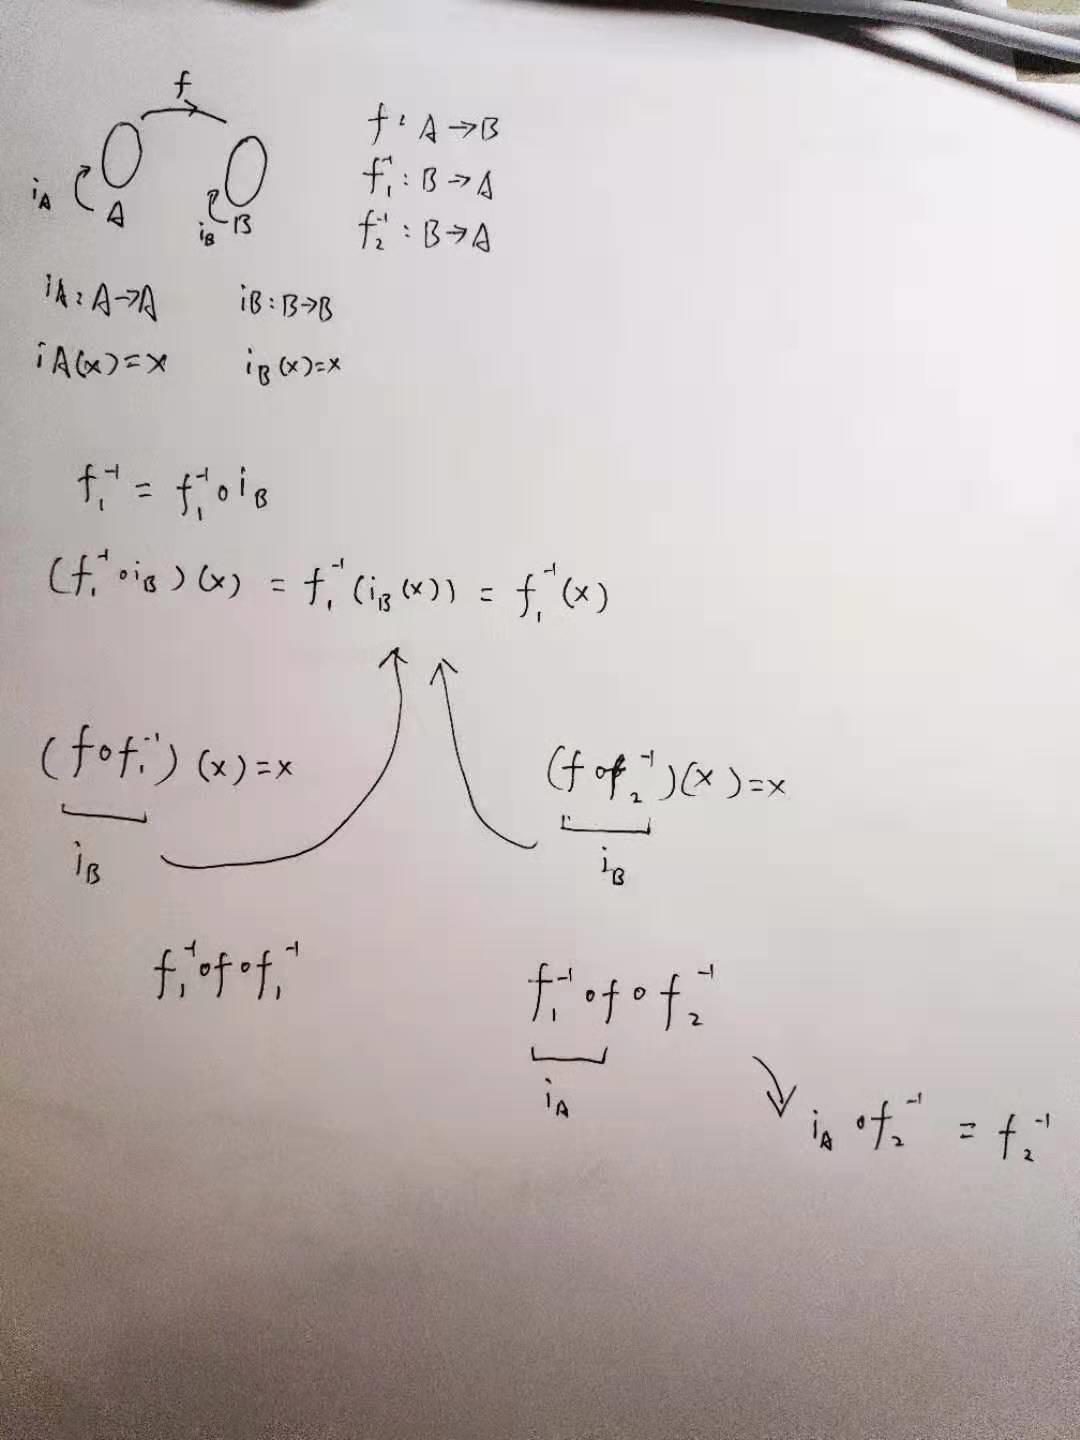 f
f : A → B
f₁⁻¹ : B → A
i_A A i_B B
f₂⁻¹ : B → A
i_A : A → A i_B : B → B
i_A(x) = x i_B(x) = x
f₁⁻¹ = f₁⁻¹ ∘ i_B
(f₁⁻¹ ∘ i_B)(x) = f₁⁻¹(i_B(x)) = f₁⁻¹(x)
(f ∘ f₁⁻¹)(x) = x (f ∘ f₂⁻¹)(x) = x
i_B i_B
f₁⁻¹ ∘ f ∘ f₁⁻¹ f₁⁻¹ ∘ f ∘ f₂⁻¹
i_A
i_A ∘ f₂⁻¹ = f₂⁻¹